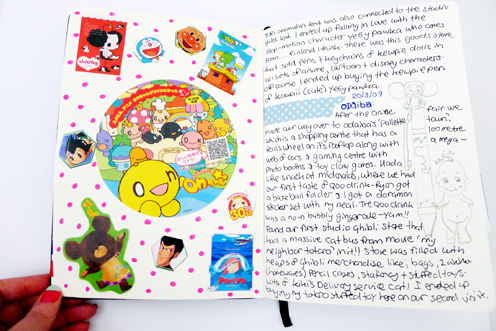 animation tent was also connected to the studio
ghibli tent I ended up falling in love with the
stop-motion character yeey pawlka who comes
from finland I think. There was this goods store
that sold pens + keychains of kewpie dolls in
all sorts of anime, cartoon + disney characters.
of course I ended up buying the kewpie pen
of kawaii (cute) yeey pawlka
20/3/09
ODAIBA:
After the anime
fair we
made our way over to odaiba's 'Pallette
town'.
which is a shopping centre that has a
100 metre
ferris wheel on its rooftop along with
a mega-
web of cars & gaming centre with
photo booths & toy claw games. Had a
little snack at mcdonalds, where we had
our first taste of Qoo drink. Ryan got
a baseball folder & I got a doramon
sticker set with my meal. The Qoo drink
was a non bubbly gingerale - yum!!
Found our first studio Ghibli store that
had a massive cat bus from movie 'my
neighbor totoro' in it!! Store was filled with
heaps of ghibli merchandise like, bags,
homewares, pencil cases, stationery + stuffed toys.
lots of kiki's delivery service cat! I ended up
buying my totoro stuffed toy here on our second visit.